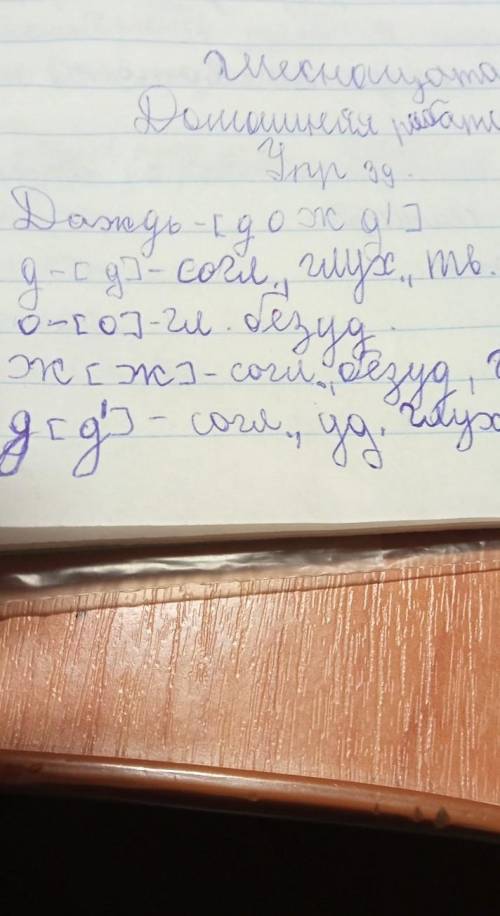 Домашняя работа
Упр 39.
Даждь-[дождʼ]
д-[д]-согл., глух., тв.
о-[о]-гл. безуд.
ж[ж]-согл., безуд,
д[дʼ]-согл., уд. глух